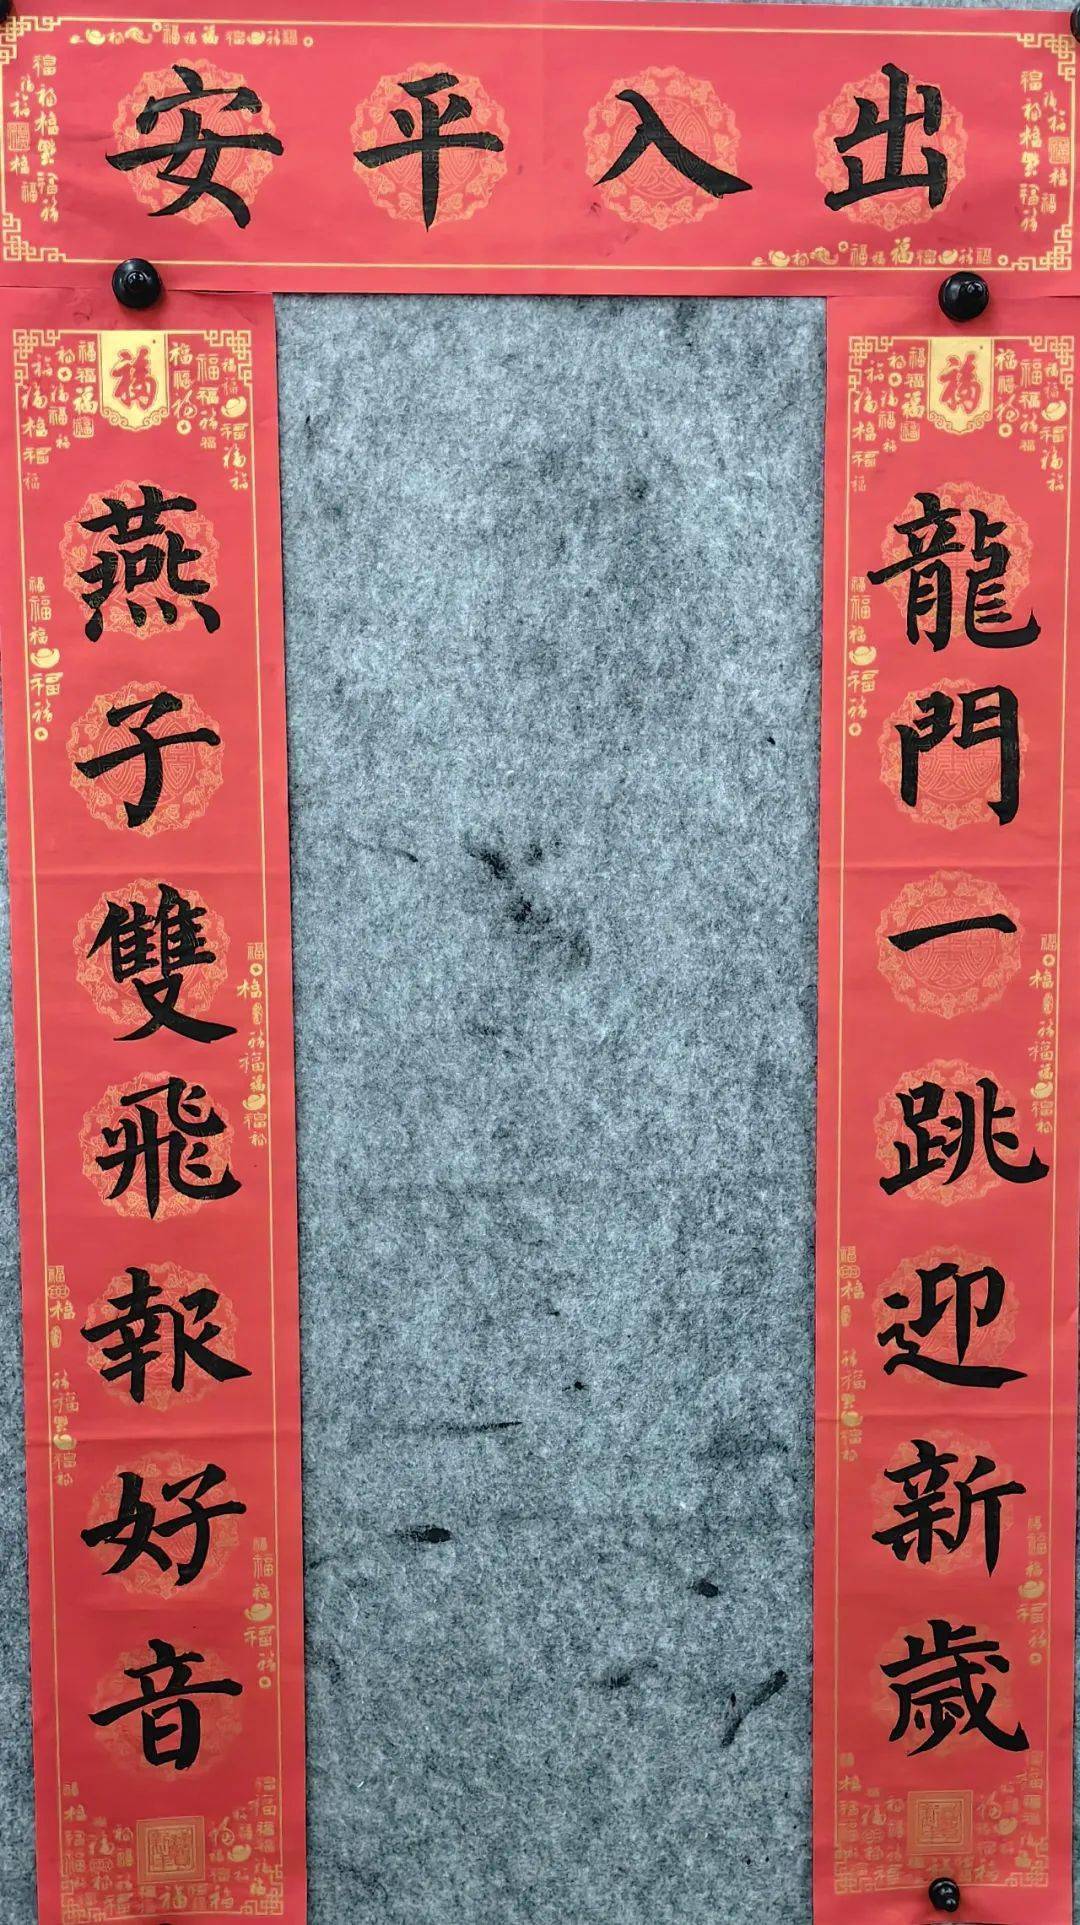 出入平安
龍門一跳迎新歲
燕子雙飛報好音
福
福